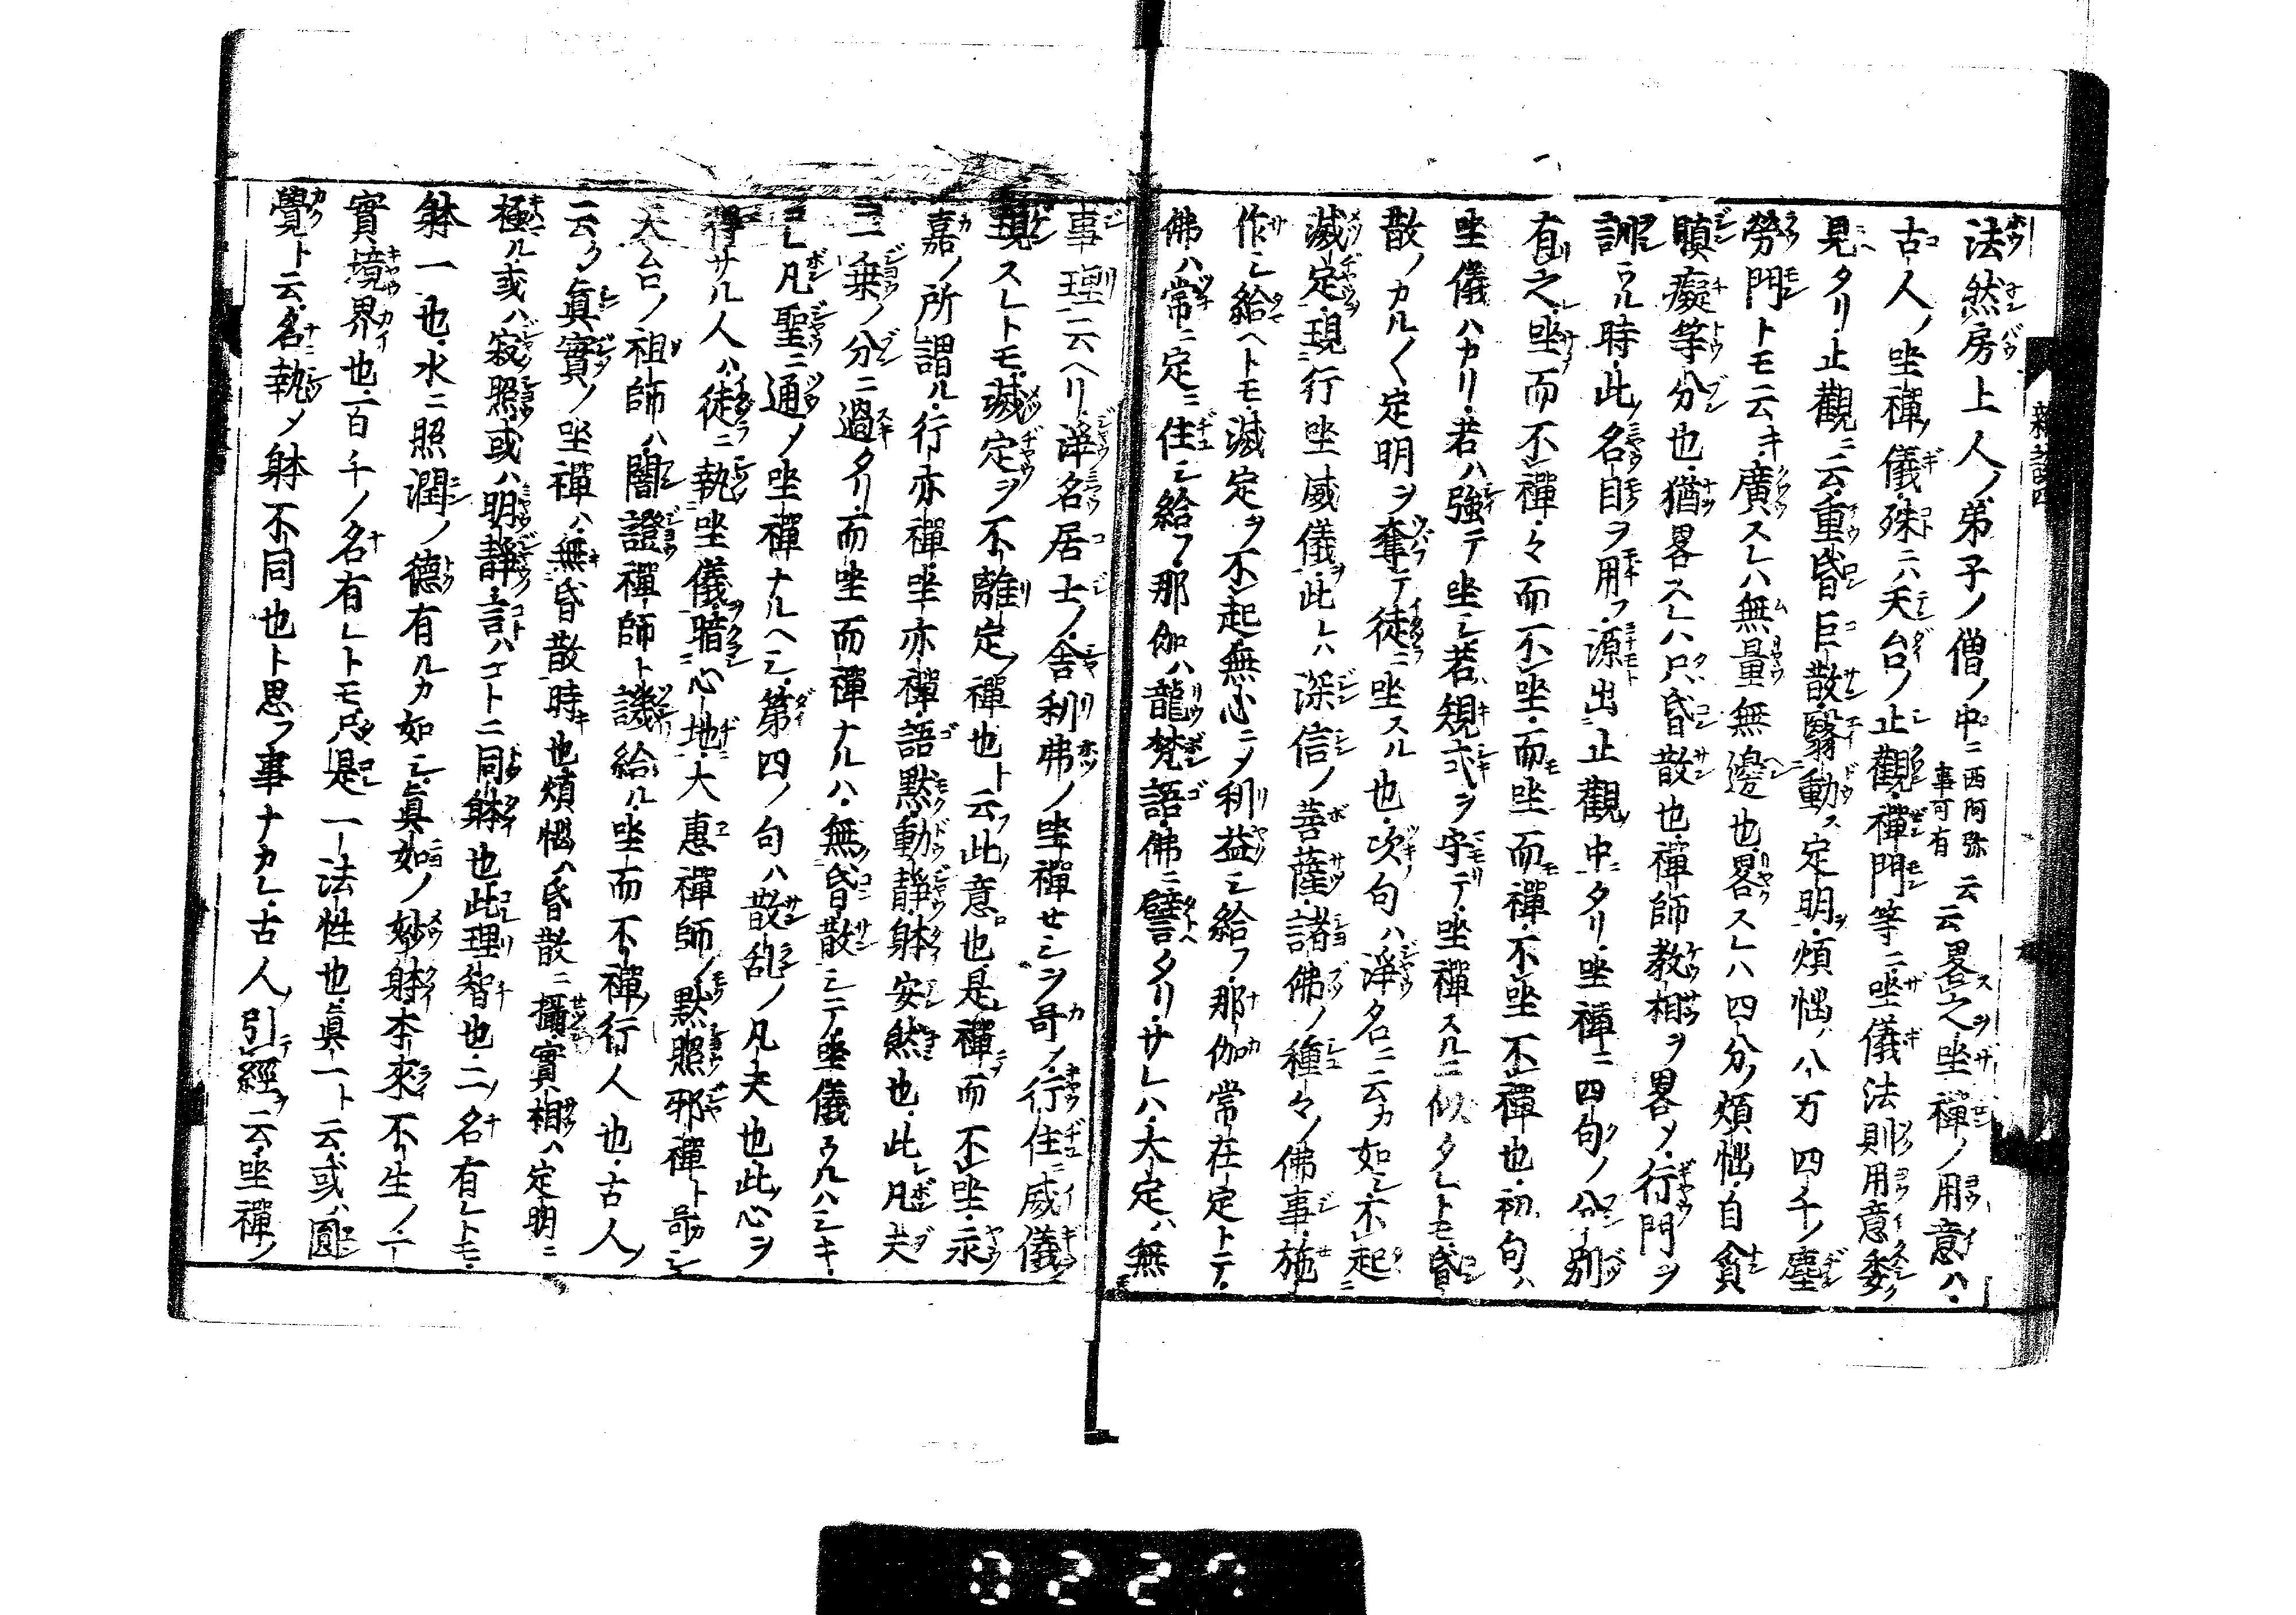 法然房上人ノ弟子ノ僧ノ中ニ西阿弥事可有云云畧之坐禪ノ用意ハ
古人ノ坐禪ノ儀殊ニハ天台ノ止觀禪門等ニ坐儀法則用意委ク
見タリ止觀ニ云重昏巨散翳動ス定明ヲ煩惱ノ八万四千ノ塵
勞門トモ云キ廣スレハ無量無邊也畧スレハ四分ノ煩惱自貪
瞋癡等分也猶畧スレハ只昏散也禪師教相ヲ畧メ行門ヲ
訓ヲル時此ノ名目ヲ用フ源出止觀中タリ坐禪ニ四句ノ分別
有之坐而不禪々而不坐而坐而禪不坐不禪也初句ハ
坐儀ハカリ若ハ強テ坐シ若規式ヲ守テ坐禪スルニ似タレトモ昏
散ノカルノ〳〵定明ヲ奪テ徒ニ坐スル也次句ハ淨名ニ云カ如シ不起
滅定現行坐威儀ヲ此レハ深信ノ菩薩諸佛ノ種々ノ佛事施
作シ給ヘトモ滅定ヲ不起無心ニメ利益シ給フ那伽常在定トテ
佛ハ常ニ定ニ住シ給フ那伽ハ龍梵語佛ニ譬タリサレハ大定ハ無
事理云ヘリ淨名居士ノ舎利弗ノ坐禪セシヲ呵メ行住ニ威儀
現スレトモ滅定ヲ不離定ノ禪也ト云此意也是禪而不坐永
嘉ノ所謂ル行亦禪坐亦禪語默動靜躰安然也此レ凡夫
二乗ノ分ニ過タリ而坐而禪ナルハ無昏散シテ坐儀ウルハシキ
コレ凡聖ニ通メ坐禪ナルヘシ第四ノ句ハ散乱ノ凡夫也此心ヲ
得サル人ハ徒ニ執坐儀ヲ暗心地大惠禪師ノ默照邪禪ト呵シ
天台ノ祖師ハ闇證禪師ト譏給ル坐而不禪ノ行人也古人ノ
云ク眞實ノ坐禪ハ無昏散時也煩惱ハ昏散ニ攝實相ハ定明ニ
極ル或ハ寂照或ハ明靜言ハコトニ同躰也此理智也二ノ名有レトモ
躰一也水ニ照潤ノ德有ルカ如シ眞如ノ妙躰本來不生ノ一
實境界也百千ノ名有レトモ只是一法性也眞一ト云或ハ圓
覺ト云名執メ躰不同也ト思フ事ナカレ古人ノ引經ヲ云坐禪ノ